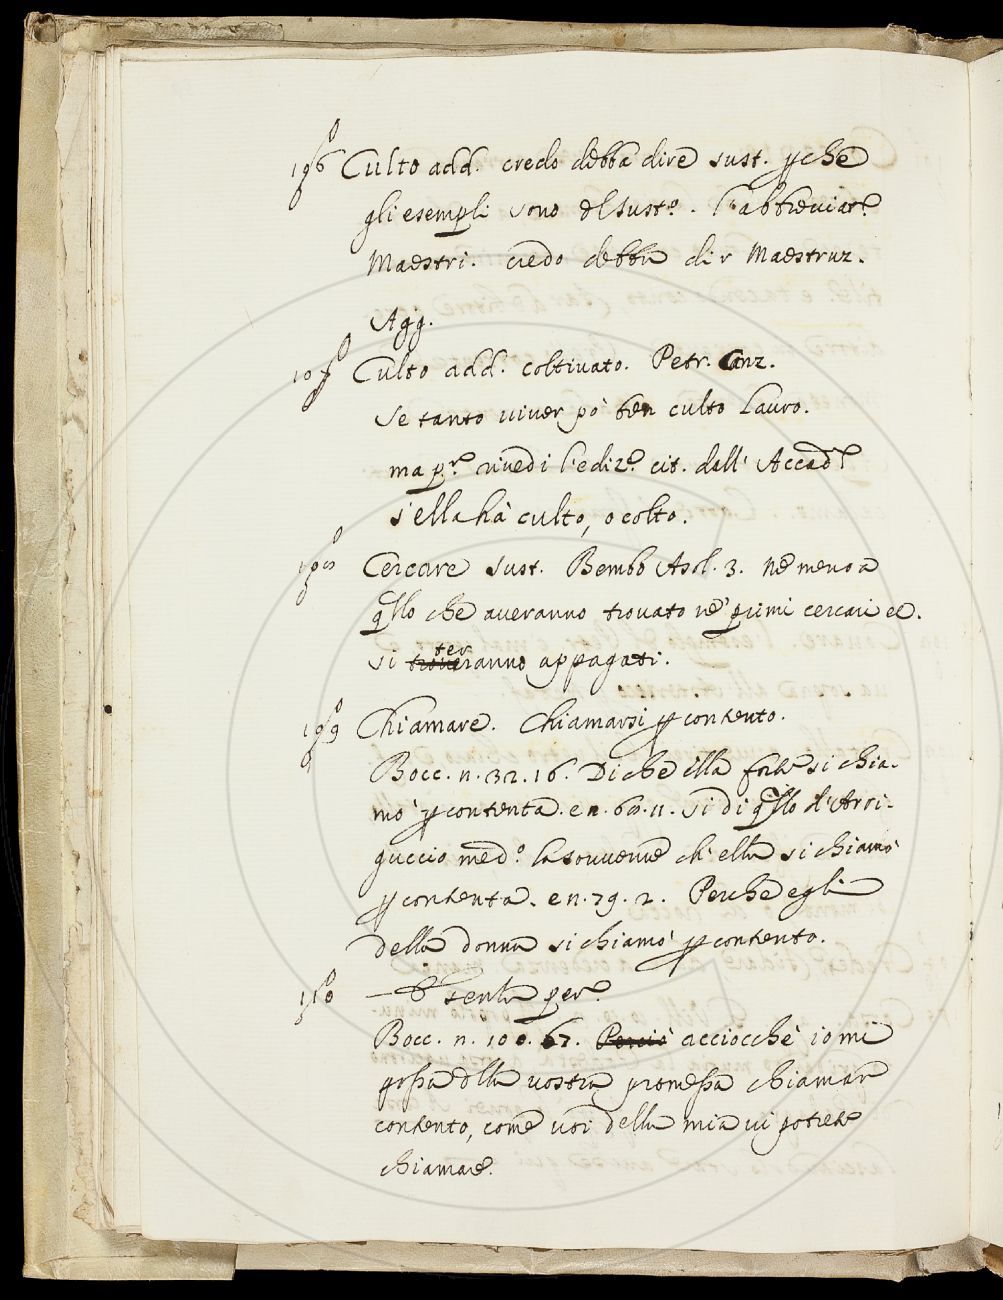 Culto add. credo debba dire sust. pche
gli esempli sono del Sust.º. l'abbreviat.ª
Maestri. credo debba dir Maestruz.
Agg.
Culto add. coltivato. Petr. Canz.
Se tanto viver pò ben culto Lauro.
ma p.ª rivedi l'ediz.e cit. dall' Accad.ª
s'ella hà culto, o colto.
Cercare sust. Bembo Asol. 3. Ne meno a
qllo che averanno trovato ne' primi cercari ec.
si terranno appagati.
1909 Chiamare. Chiamarsi p contento.
Bocc. n. 32. 16. Di che ella forte si chia-
mò p contenta. e n. 68. 11. si di qllo d'Arri-
guccio med.º la sovvenne ch'ella si chiamò
p contenta. e n. 79. 2. Perche egli
della donna si chiamò p contento.
— E senza per.
Bocc. n. 100. 67. Perciò acciocchè io mi
possa della vostra promessa chiamar
contento, come voi della mia vi potete
chiamare.